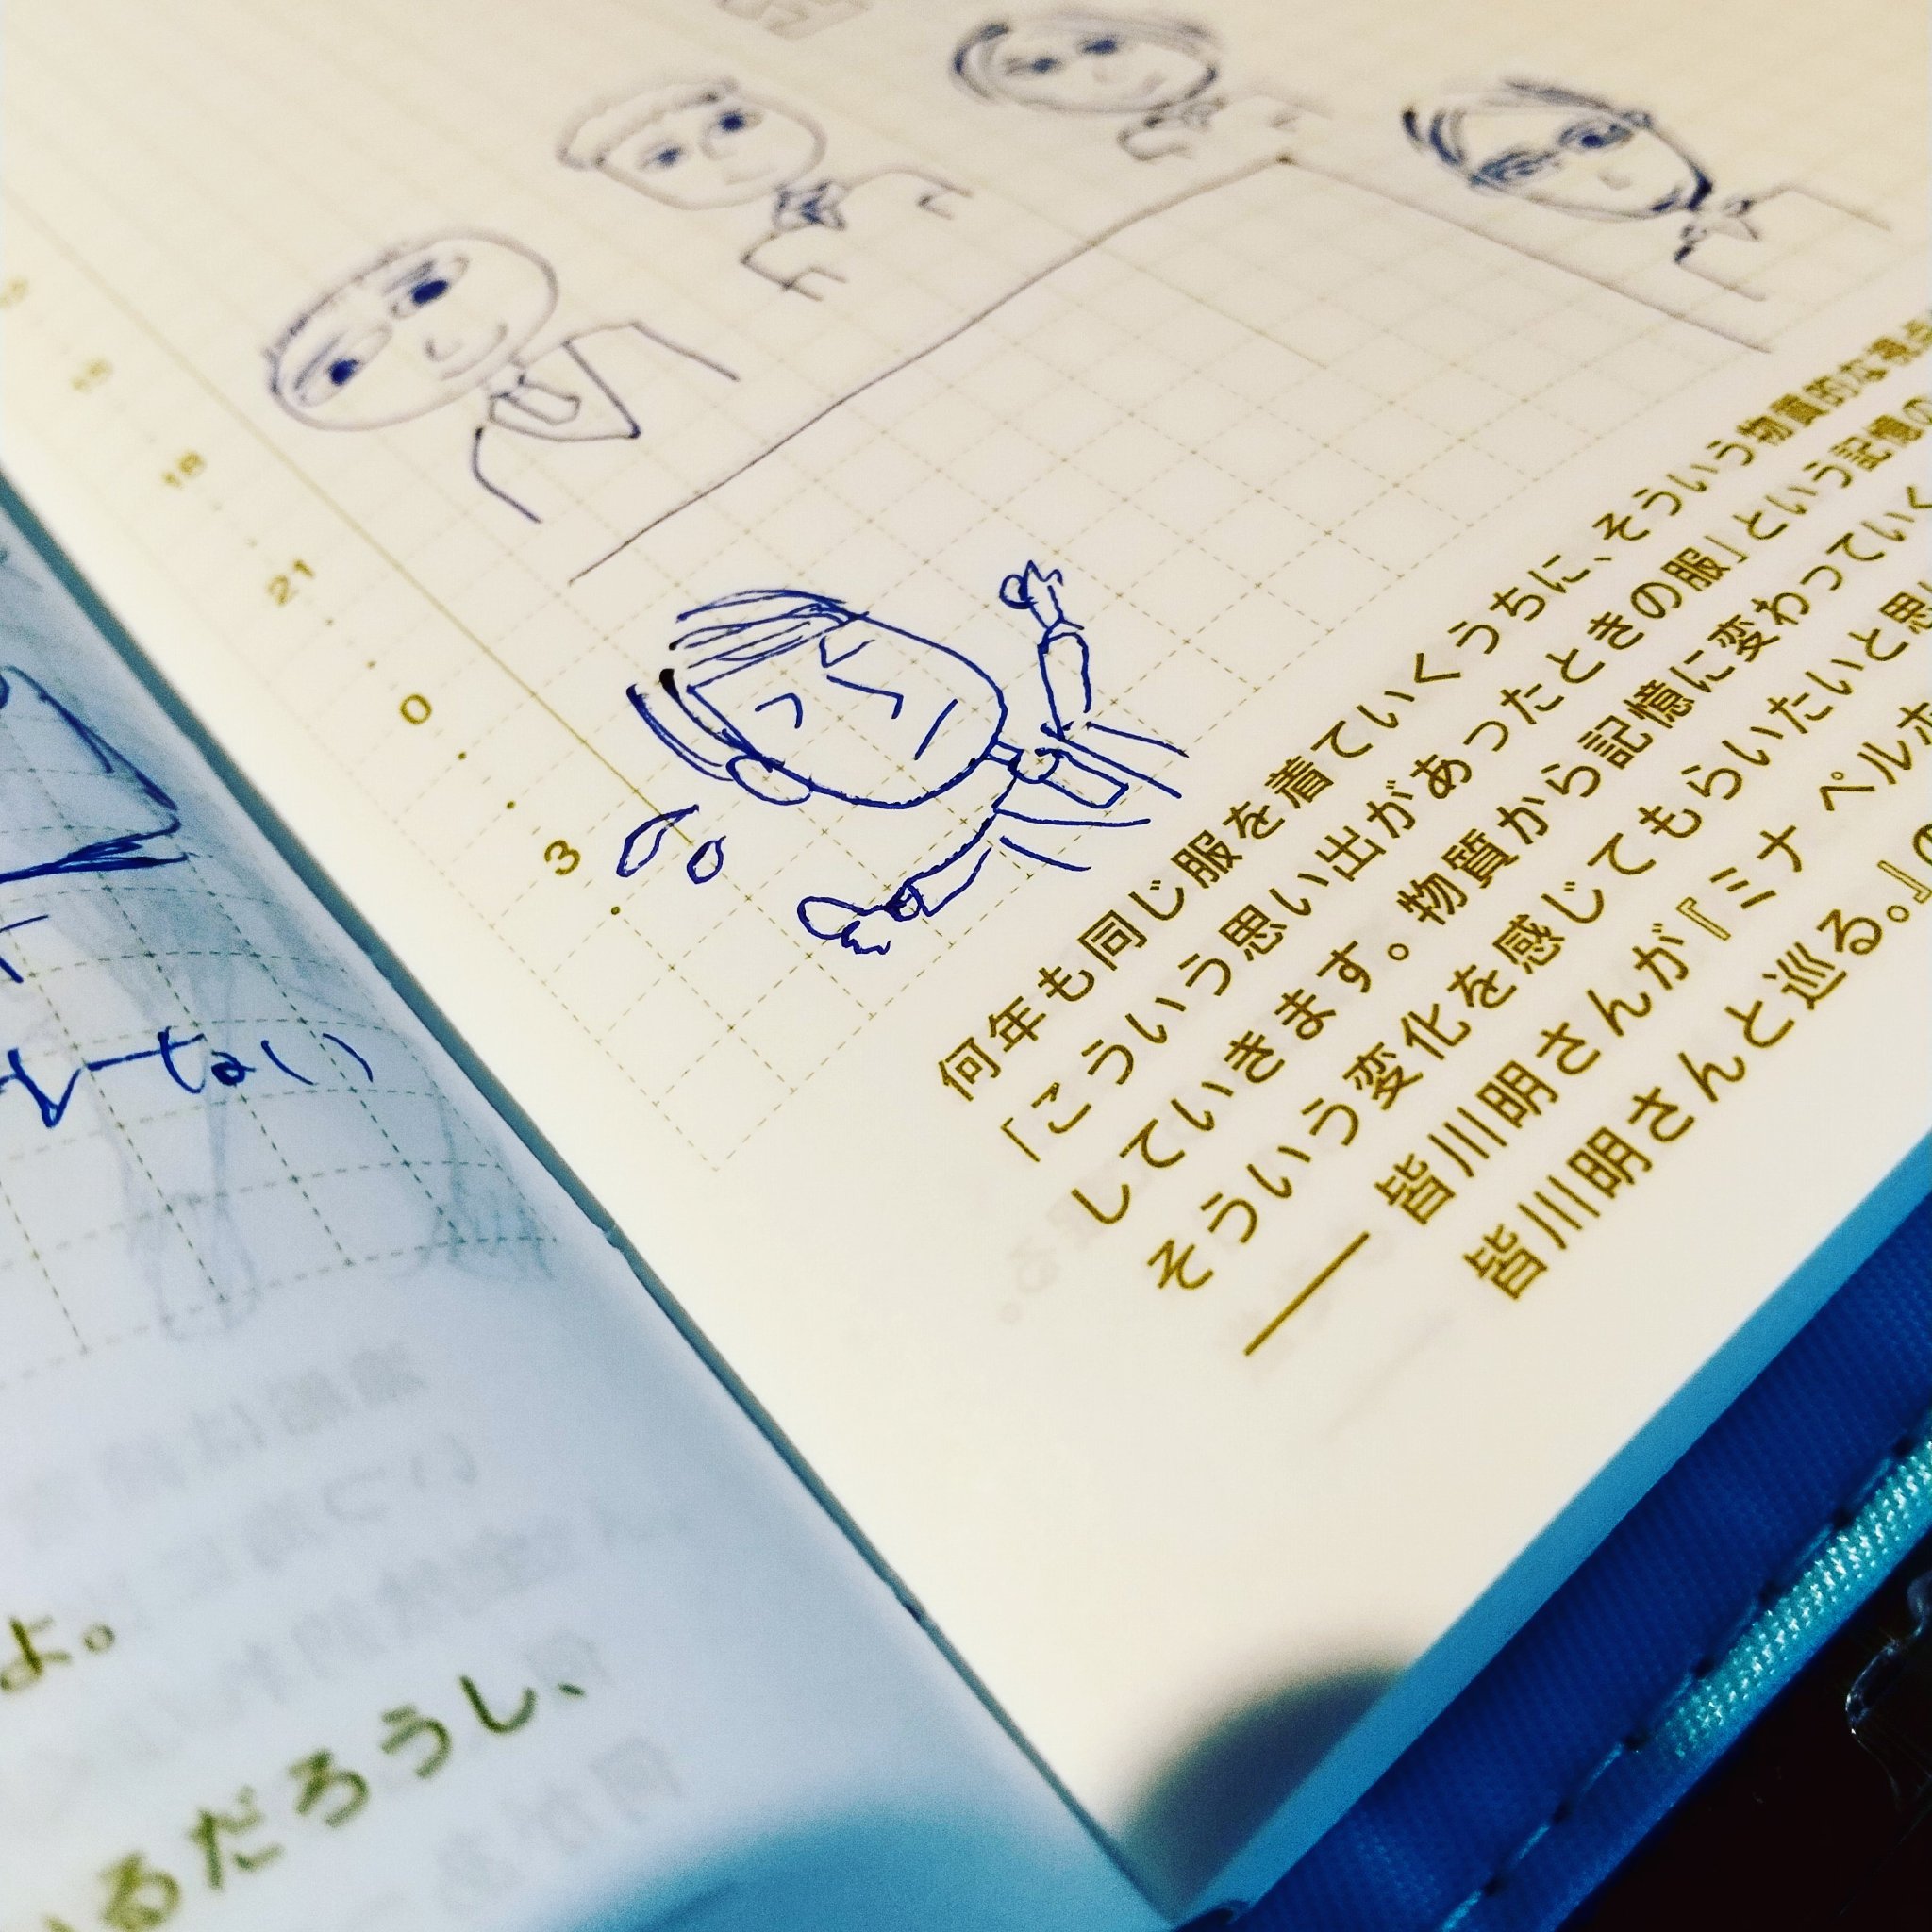 18
21
0
3
ない
何年も同じ服を着ていくうちに、そういう物質的な視点
「こういう思い出があったときの服」という記憶の
していきます。物質から記憶に変わっていく
そういう変化を感じてもらいたいと思
―― 皆川明さんが『ミナ ペルホ
皆川明さんと巡る。』の
よ。
るだろうし、